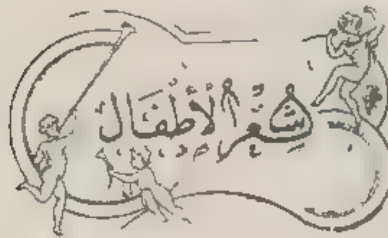 شِعْرُ الْأَطْفَالِ